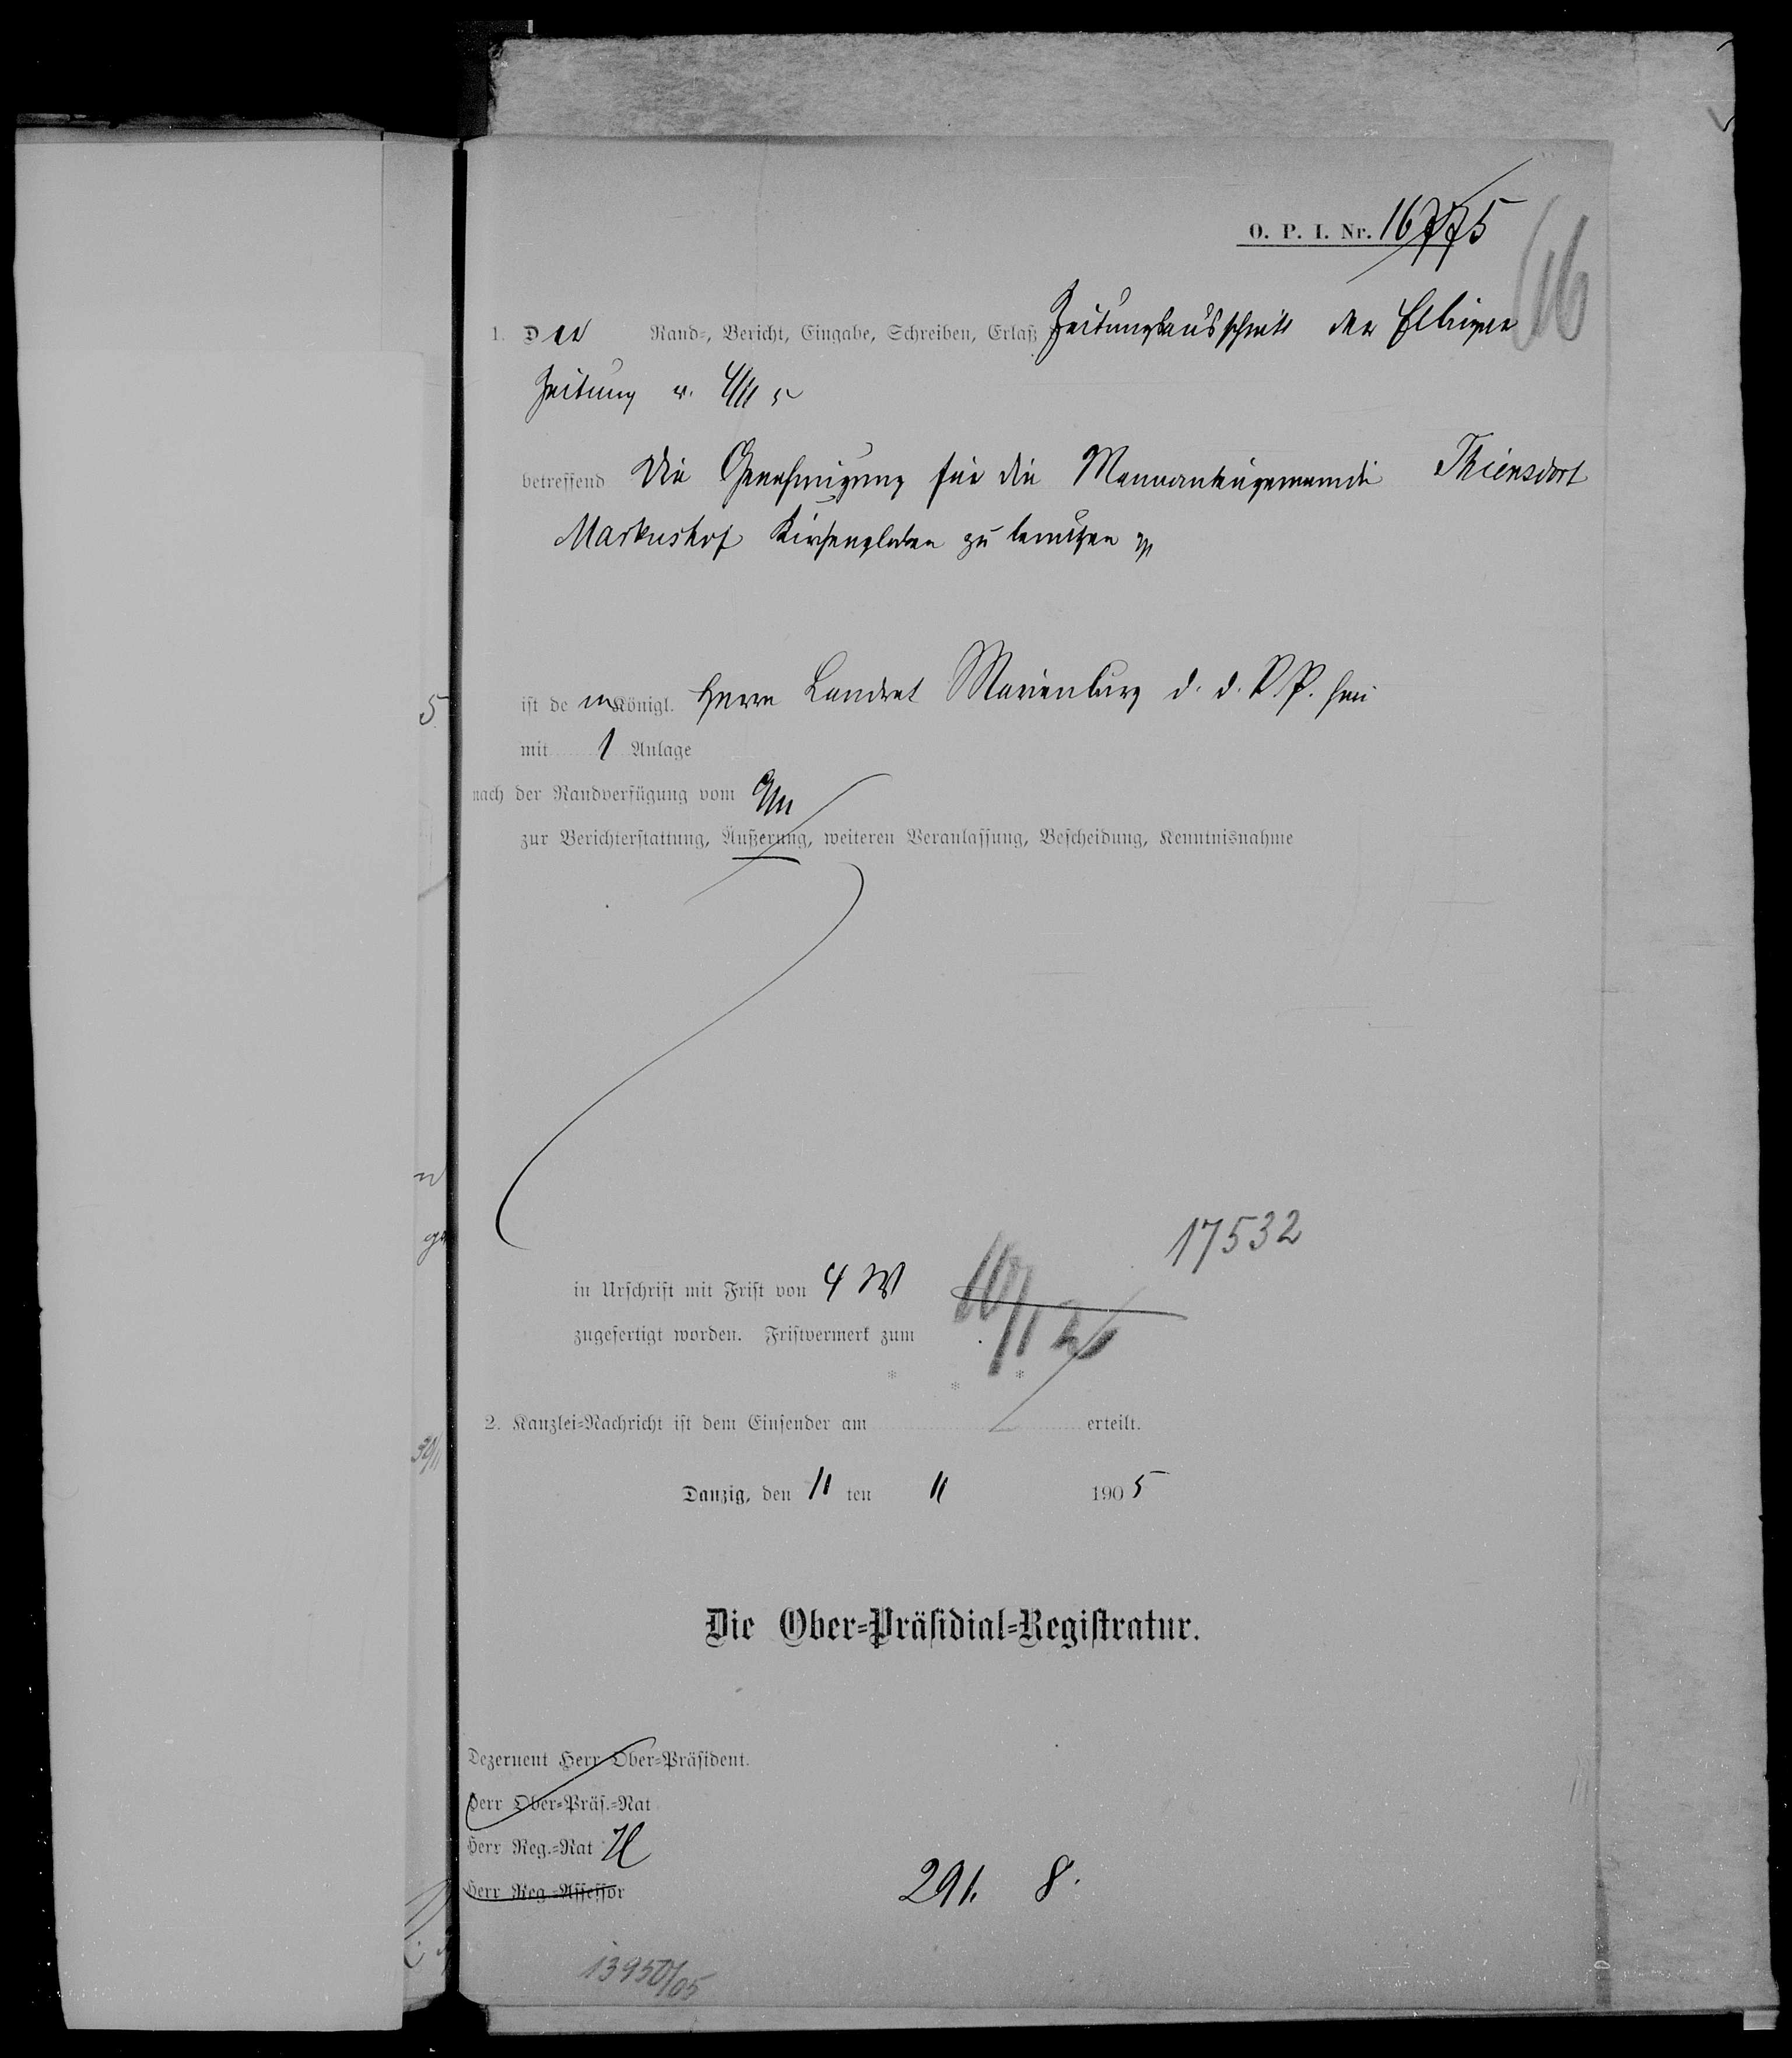 O. P. I. Nr. 16775
16
1. Der Rand-, Bericht, Eingabe, Schreiben, Erlaß Zeitungsausschnitt der Elbinger
Zeitung v. 4/11 5
betreffend Die Genehmigung für die Mennonitengemeinde Thiensdorf
Markushof Kirchenglocken zu benutzen
ist dem Königl. Herrn Landrat Marienburg d. d. R. P. hier
mit 1 Anlage
nach der Randverfügung vom 9/11
zur Berichterstattung, Äußerung, weiteren Veranlassung, Bescheidung, Kenntnisnahme
17532
in Urschrift mit Frist von 4 W
10/12
zugefertigt worden. Fristvermerk zum
* * *
2. Kanzlei-Nachricht ist dem Einsender am erteilt.
Danzig, den 11 ten 11 1905
Die Ober-Präsidial-Registratur.
Dezernent Herr Ober-Präsident.
Herr Ober-Präs.-Rat
Herr Reg.-Rat
Herr Reg.-Assessor
291. 8.
13950/05
5
30/11